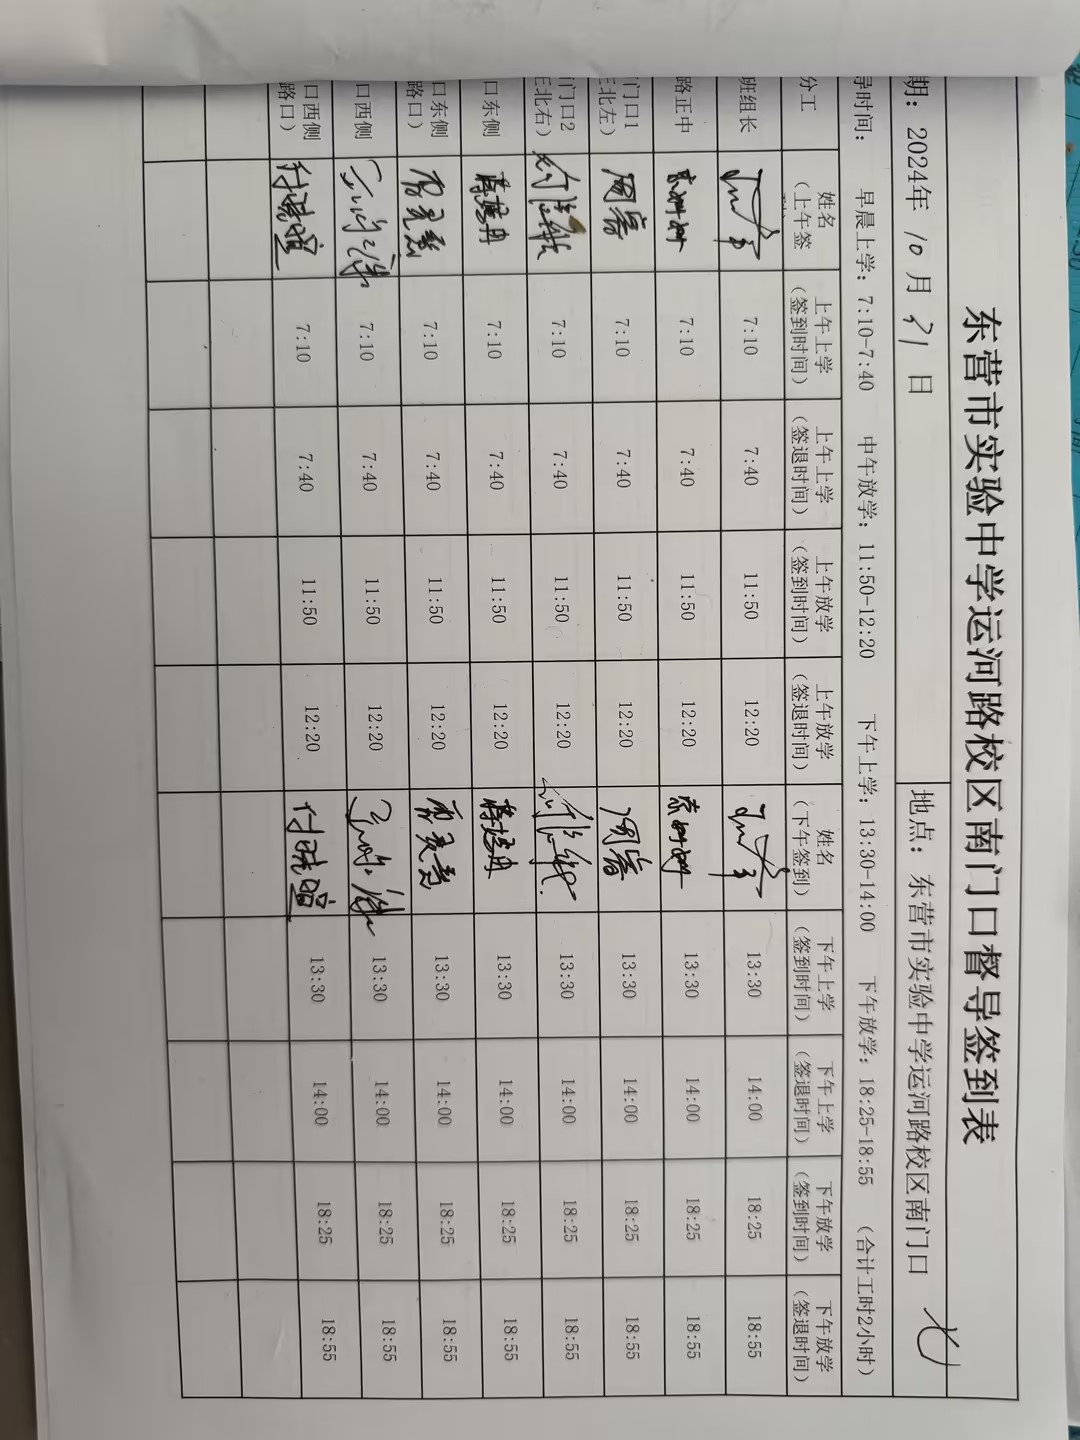 东营市实验中学运河路校区南门口督导签到表
期：2024年 10 月 21 日 地点：东营市实验中学运河路校区南门口 七
导时间： 早晨上学：7:10-7:40 中午放学：11:50-12:20 下午上学：13:30-14:00 下午放学：18:25-18:55 （合计工时2小时）
分工 姓名（上午签 上午上学（签到时间） 上午上学（签退时间） 上午放学（签到时间） 上午放学（签退时间） 姓名（下午签到） 下午上学（签到时间） 下午上学（签退时间） 下午放学（签到时间） 下午放学（签退时间）
班组长 7:10 7:40 11:50 12:20 13:30 14:00 18:25 18:55
路正中 7:10 7:40 11:50 12:20 13:30 14:00 18:25 18:55
门口1 北左） 周睿 7:10 7:40 11:50 12:20 周睿 13:30 14:00 18:25 18:55
门口2 北右） 7:10 7:40 11:50 12:20 13:30 14:00 18:25 18:55
口东侧 7:10 7:40 11:50 12:20 13:30 14:00 18:25 18:55
口东侧 路口） 7:10 7:40 11:50 12:20 13:30 14:00 18:25 18:55
口西侧 7:10 7:40 11:50 12:20 13:30 14:00 18:25 18:55
口西侧 路口） 付晓暄 7:10 7:40 11:50 12:20 付晓暄 13:30 14:00 18:25 18:55